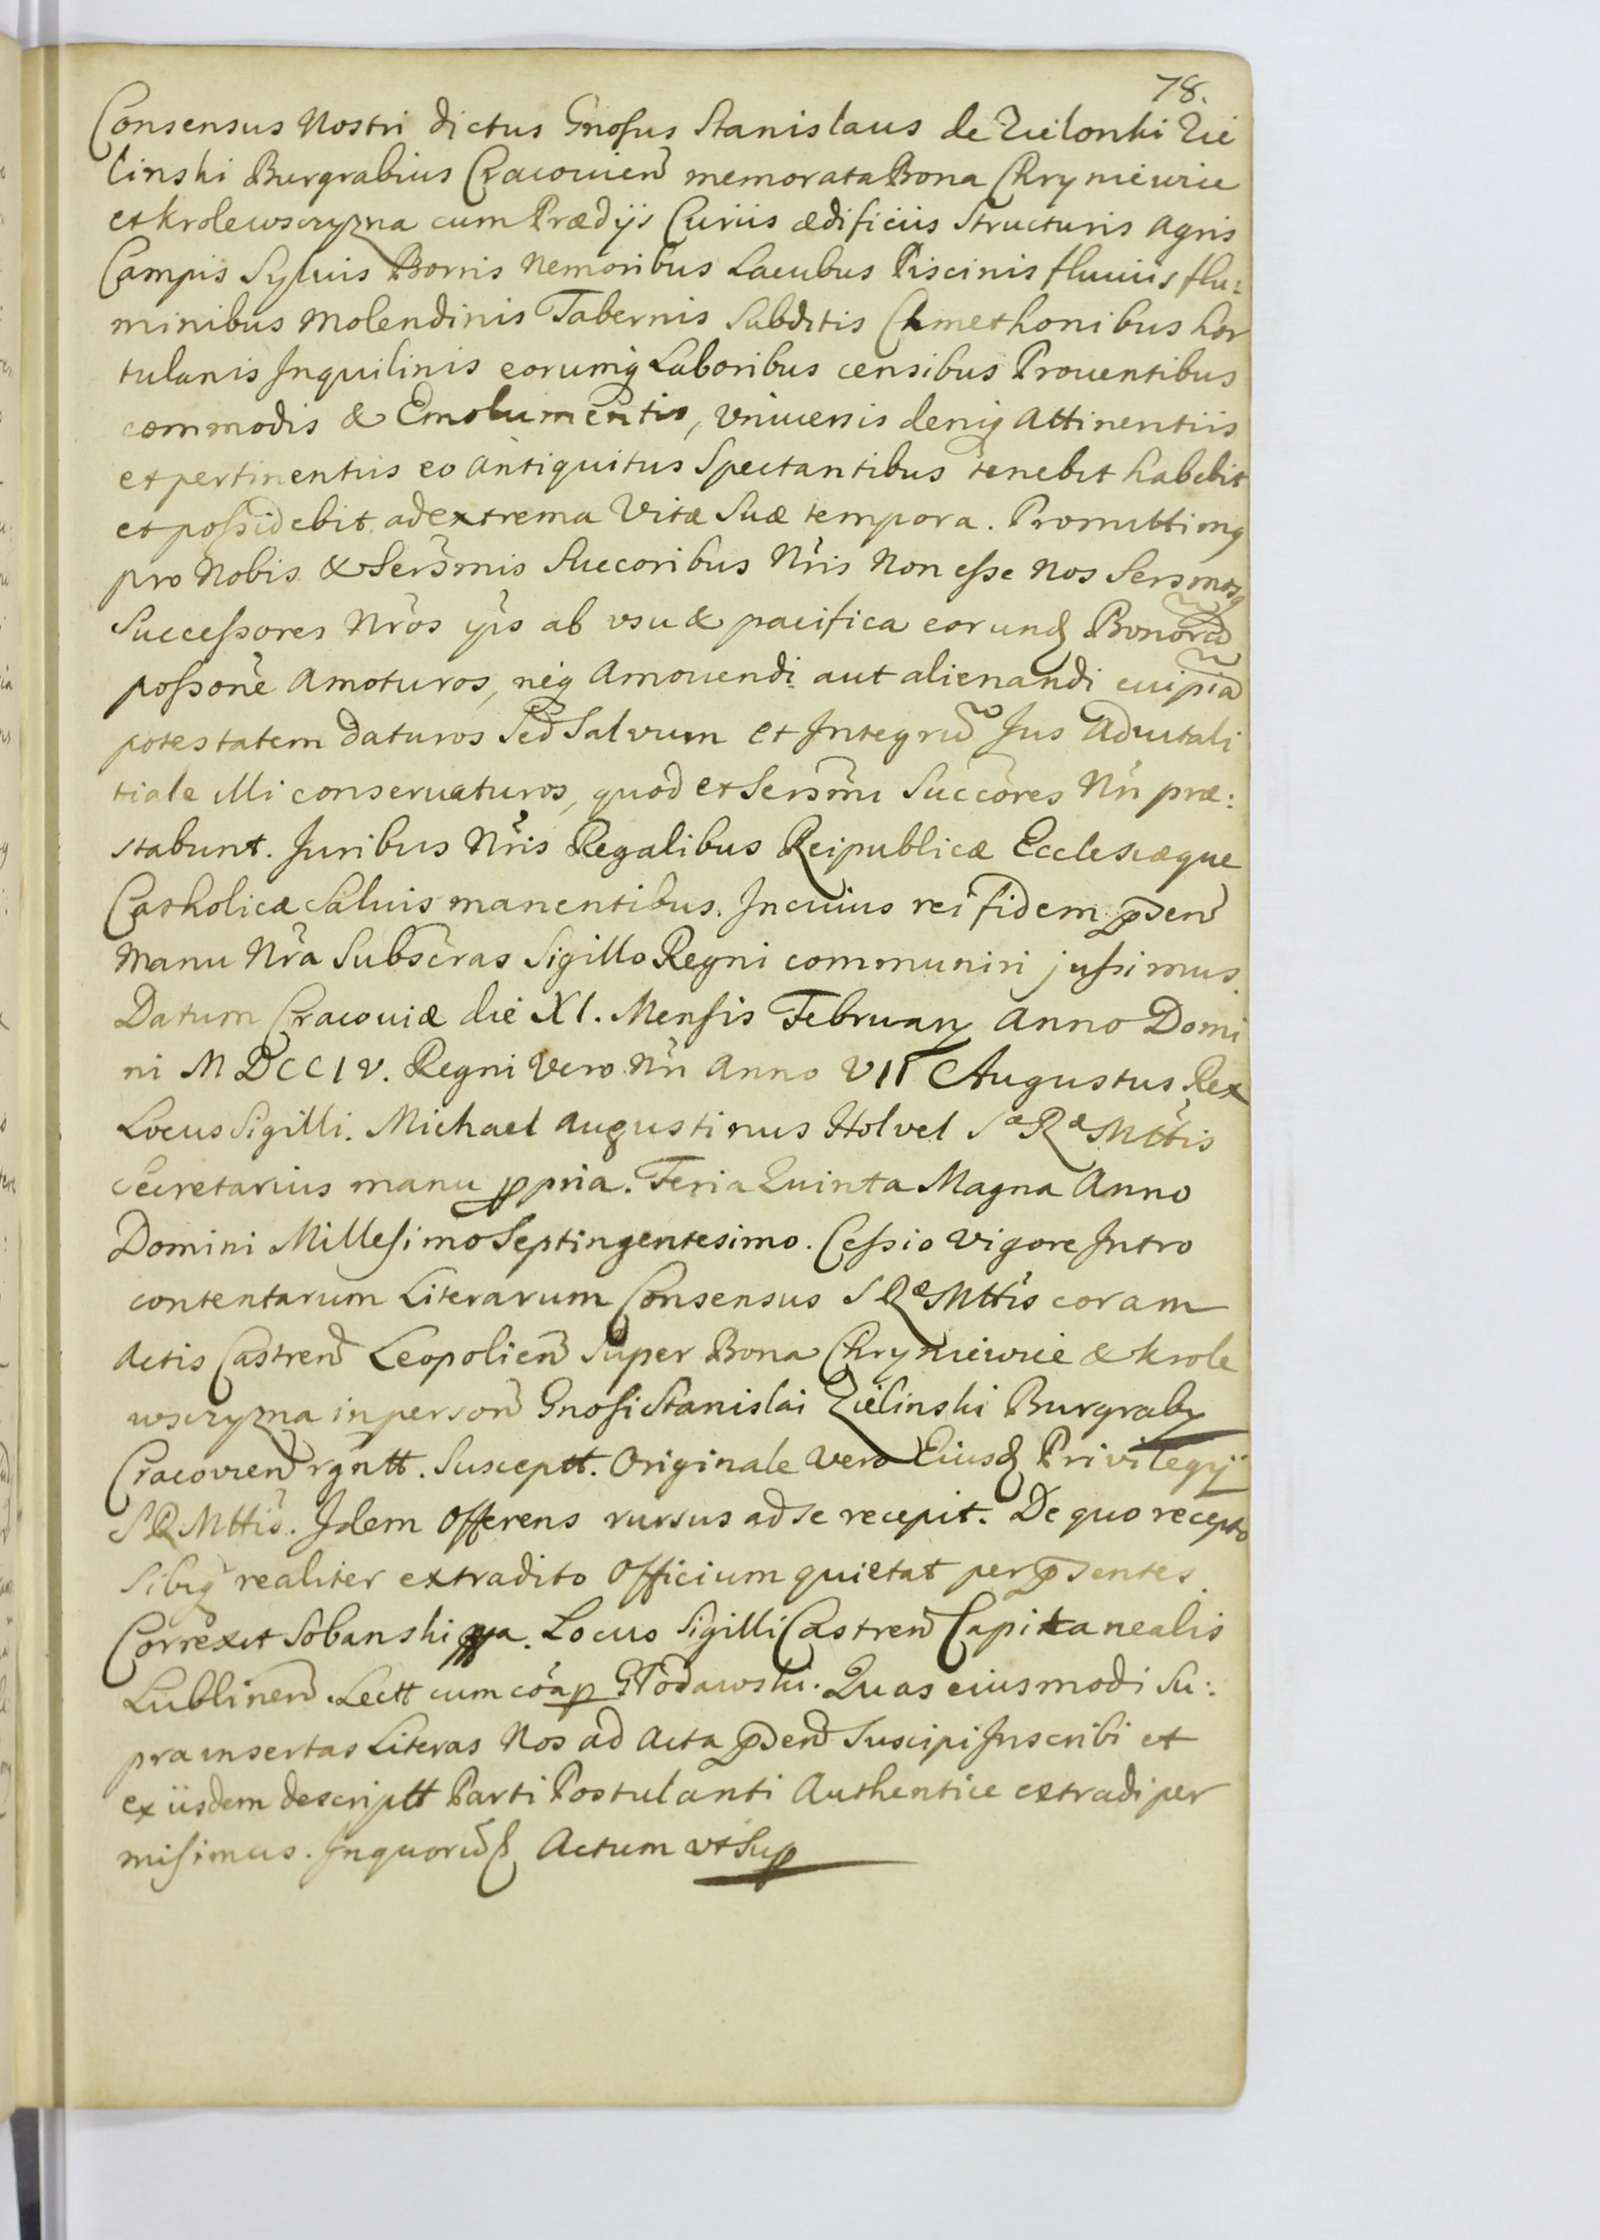 78.
Consensus Nostri dictus Gnosus Stanislaus de Zielonki Zie
linski Burgrabius Cracovien memorata Bona Chryniewice
et krolewsczyzna cum Prædijs Curiis ædificiis Structuris agris
Campis Syluis Borris Nemoribus Lacubus Piscinis fluuiis flu:
minibus Molendinis Tabernis Subditis Cmethonibus hor
tulanis Inquilinis eorumq Laboribus censibus Prouentibus
commodis & Emolumentis, vniuersis deniq Attinentiis
et pertinentiis eo Antiquitus Spectantibus tenebit habebit
et possidebit ad extrema Vitæ Suæ tempora. Promittimq
pro Nobis & Sersmis Succoribus Nris Non esse Nos Sersmosq
Successores Nros ips ab vsu & pacifica eorund Bonorũ
possone Amoturos, neq Amouendi aut alienandi cuipiã
potestatem daturos Sed Salvum et Integrũ Jus Aduitali
tiale illi conseruaturos, quod et Sersmi Succores Nri præ:
stabunt. Juribus Nris Regalibus Reipublicæ Ecclesiæque
Catholicæ Saluis manentibus. In cuius rei fidem pden
Manu Nra Subscras Sigillo Regni communiri jussimus.
Datum Cracouiæ die XI. Mensis February Anno Domi
ni MDCCIV. Regni Vero Nri Anno VII Augustus Rex
Locus Sigilli. Michael Augustinus Holvel Sæ Ræ Mttis
Secretarius manu ppria. Feria Quinta Magna Anno
Domini Millesimo Septingentesimo. Cessio Vigore Intro
contentarum Literarum Consensus S Ræ Mttis coram
Actis Castren Leopolien Super Bona Chryniewice & krole
wsczyzna in person Gnosi Stanislai Zielinski Burgraby
Cracovien rgntt. Susceptt. Originale vero Eiusd Privilegij
SR Mttis. Idem Offerens rursus ad se recepit. De quo recepto
Sibiq realiter extradito Officium quietat per psentes.
Correxit Sobanski mpa. Locus Sigilli Castren Capitanealis
Lublinen. Lectt cum coap Głodawski. Quas eiusmodi Su:
pra insertas Literas Nos ad Acta pden Suscipi Inscribi et
ex iisdem descriptt Parti Postulanti Authentice extradi per
misimus. In quorũ Actum vt Sup